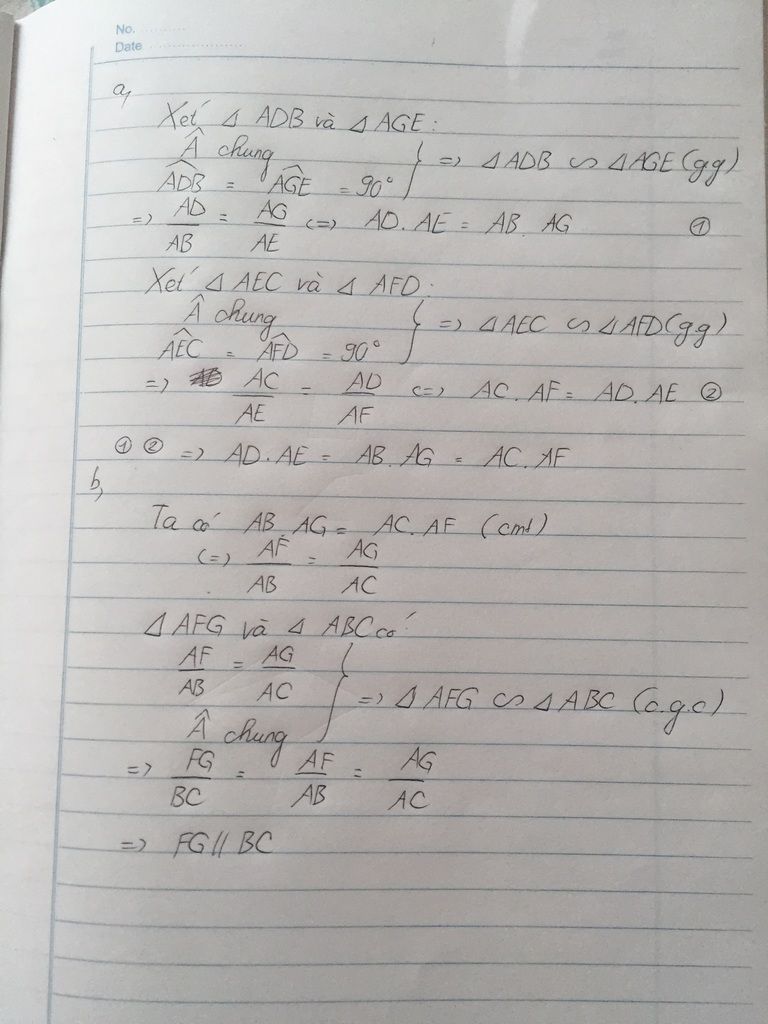 No.
Date
a,
Xét Δ ADB và Δ AGE :
Â chung
ADB̂ = AGÊ = 90° } => Δ ADB ∽ Δ AGE (gg)
=> AD/AB = AG/AE <=> AD.AE = AB.AG ①
Xét Δ AEC và Δ AFD :
Â chung
AEĈ = AFD̂ = 90° } => Δ AEC ∽ Δ AFD (gg)
=> AC/AE = AD/AF <=> AC.AF = AD.AE ②
① ② => AD.AE = AB.AG = AC.AF
b,
Ta có AB.AG = AC.AF (cmt)
<=> AF/AB = AG/AC
Δ AFG và Δ ABC có :
AF/AB = AG/AC
Â chung } => Δ AFG ∽ Δ ABC (c.g.c)
=> FG/BC = AF/AB = AG/AC
=> FG // BC